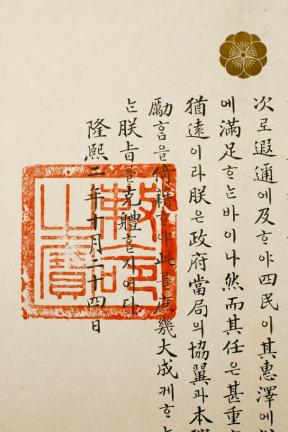 次로遐邇에及ᄒᆞ야四民이其惠澤에
에滿足ᄒᆞ는바이나然而其任은甚重
猶遠이라朕은政府當局의協翼과本
勵홈을倚賴ᄒᆞ야此를庶幾大成케ᄒᆞ
는朕旨를克體ᄒᆞ지어다
隆熙二年十月二十四日
勅命
之寶